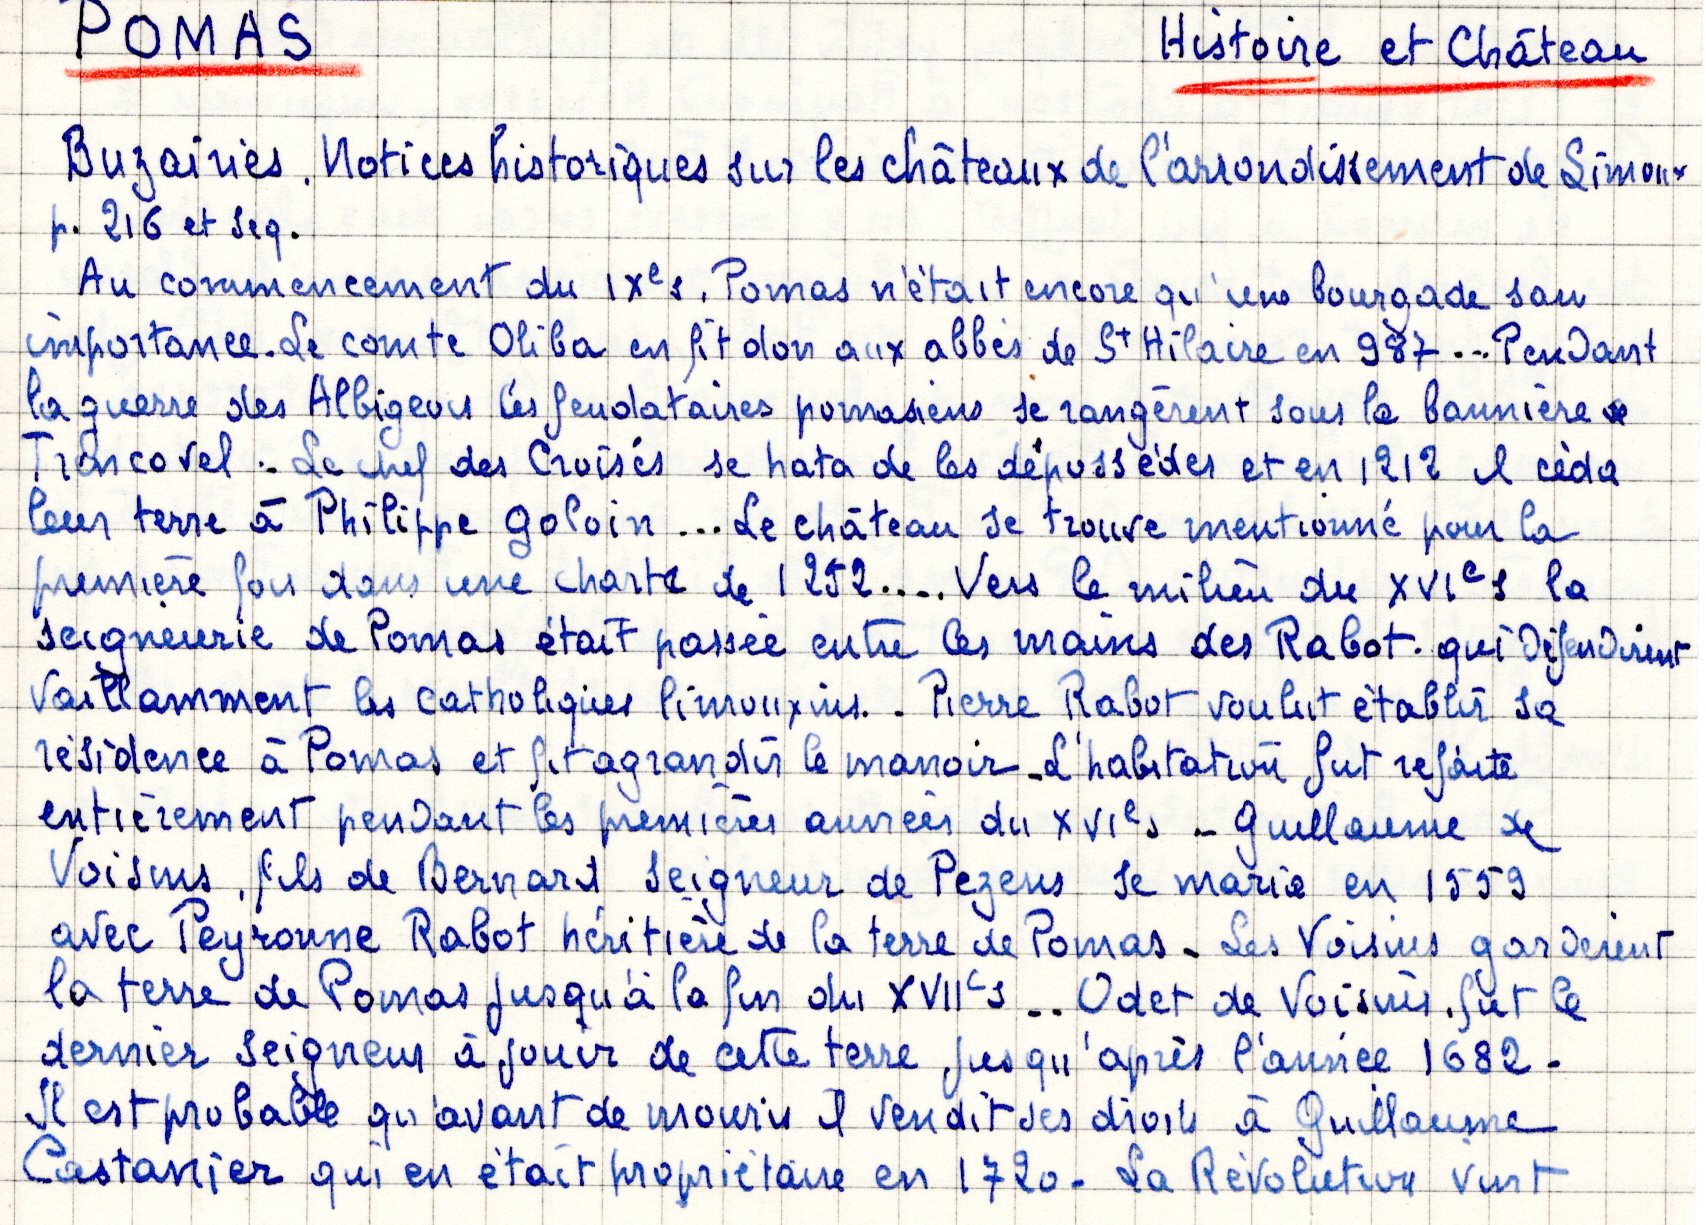 POMAS Histoire et Château
Buzairies. Notices historiques sur les châteaux de l'arrondissement de Limoux
p. 216 et seq.
Au commencement du IXe s. Pomas n'était encore qu'une bourgade sans
importance. Le comte Oliba en fit don aux abbés de St Hilaire en 987 ... Pendant
la guerre des Albigeois les feudataires pomasiens se rangèrent sous la bannière de
Trencavel .. Le chef des Croisés se hata de les déposséder et en 1212 il céda
leur terre à Philippe Goloin ... Le château se trouve mentionné pour la
première fois dans une charte de 1252 .... Vers le milieu du XVIe s la
seigneurie de Pomas était passée entre les mains des Rabot. qui défendirent
vaillamment les catholiques limouxins. . Pierre Rabot voulut établir sa
résidence à Pomas et fit agrandir le manoir - L'habitation fut refaite
entièrement pendant les premières années du XVIe s - Guillaume de
Voisins, fils de Bernard seigneur de Pezens se marie en 1559
avec Peyronne Rabot héritière de la terre de Pomas - Les Voisins gardèrent
la terre de Pomas jusqu'à la fin du XVIIe s ... Odet de Voisins, fut le
dernier seigneur à jouir de cette terre jusqu'après l'année 1682 -
Il est probable qu'avant de mourir il vendit ses droits à Guillaume
Castanier qui en était propriétaire en 1720 - La Révolution vint